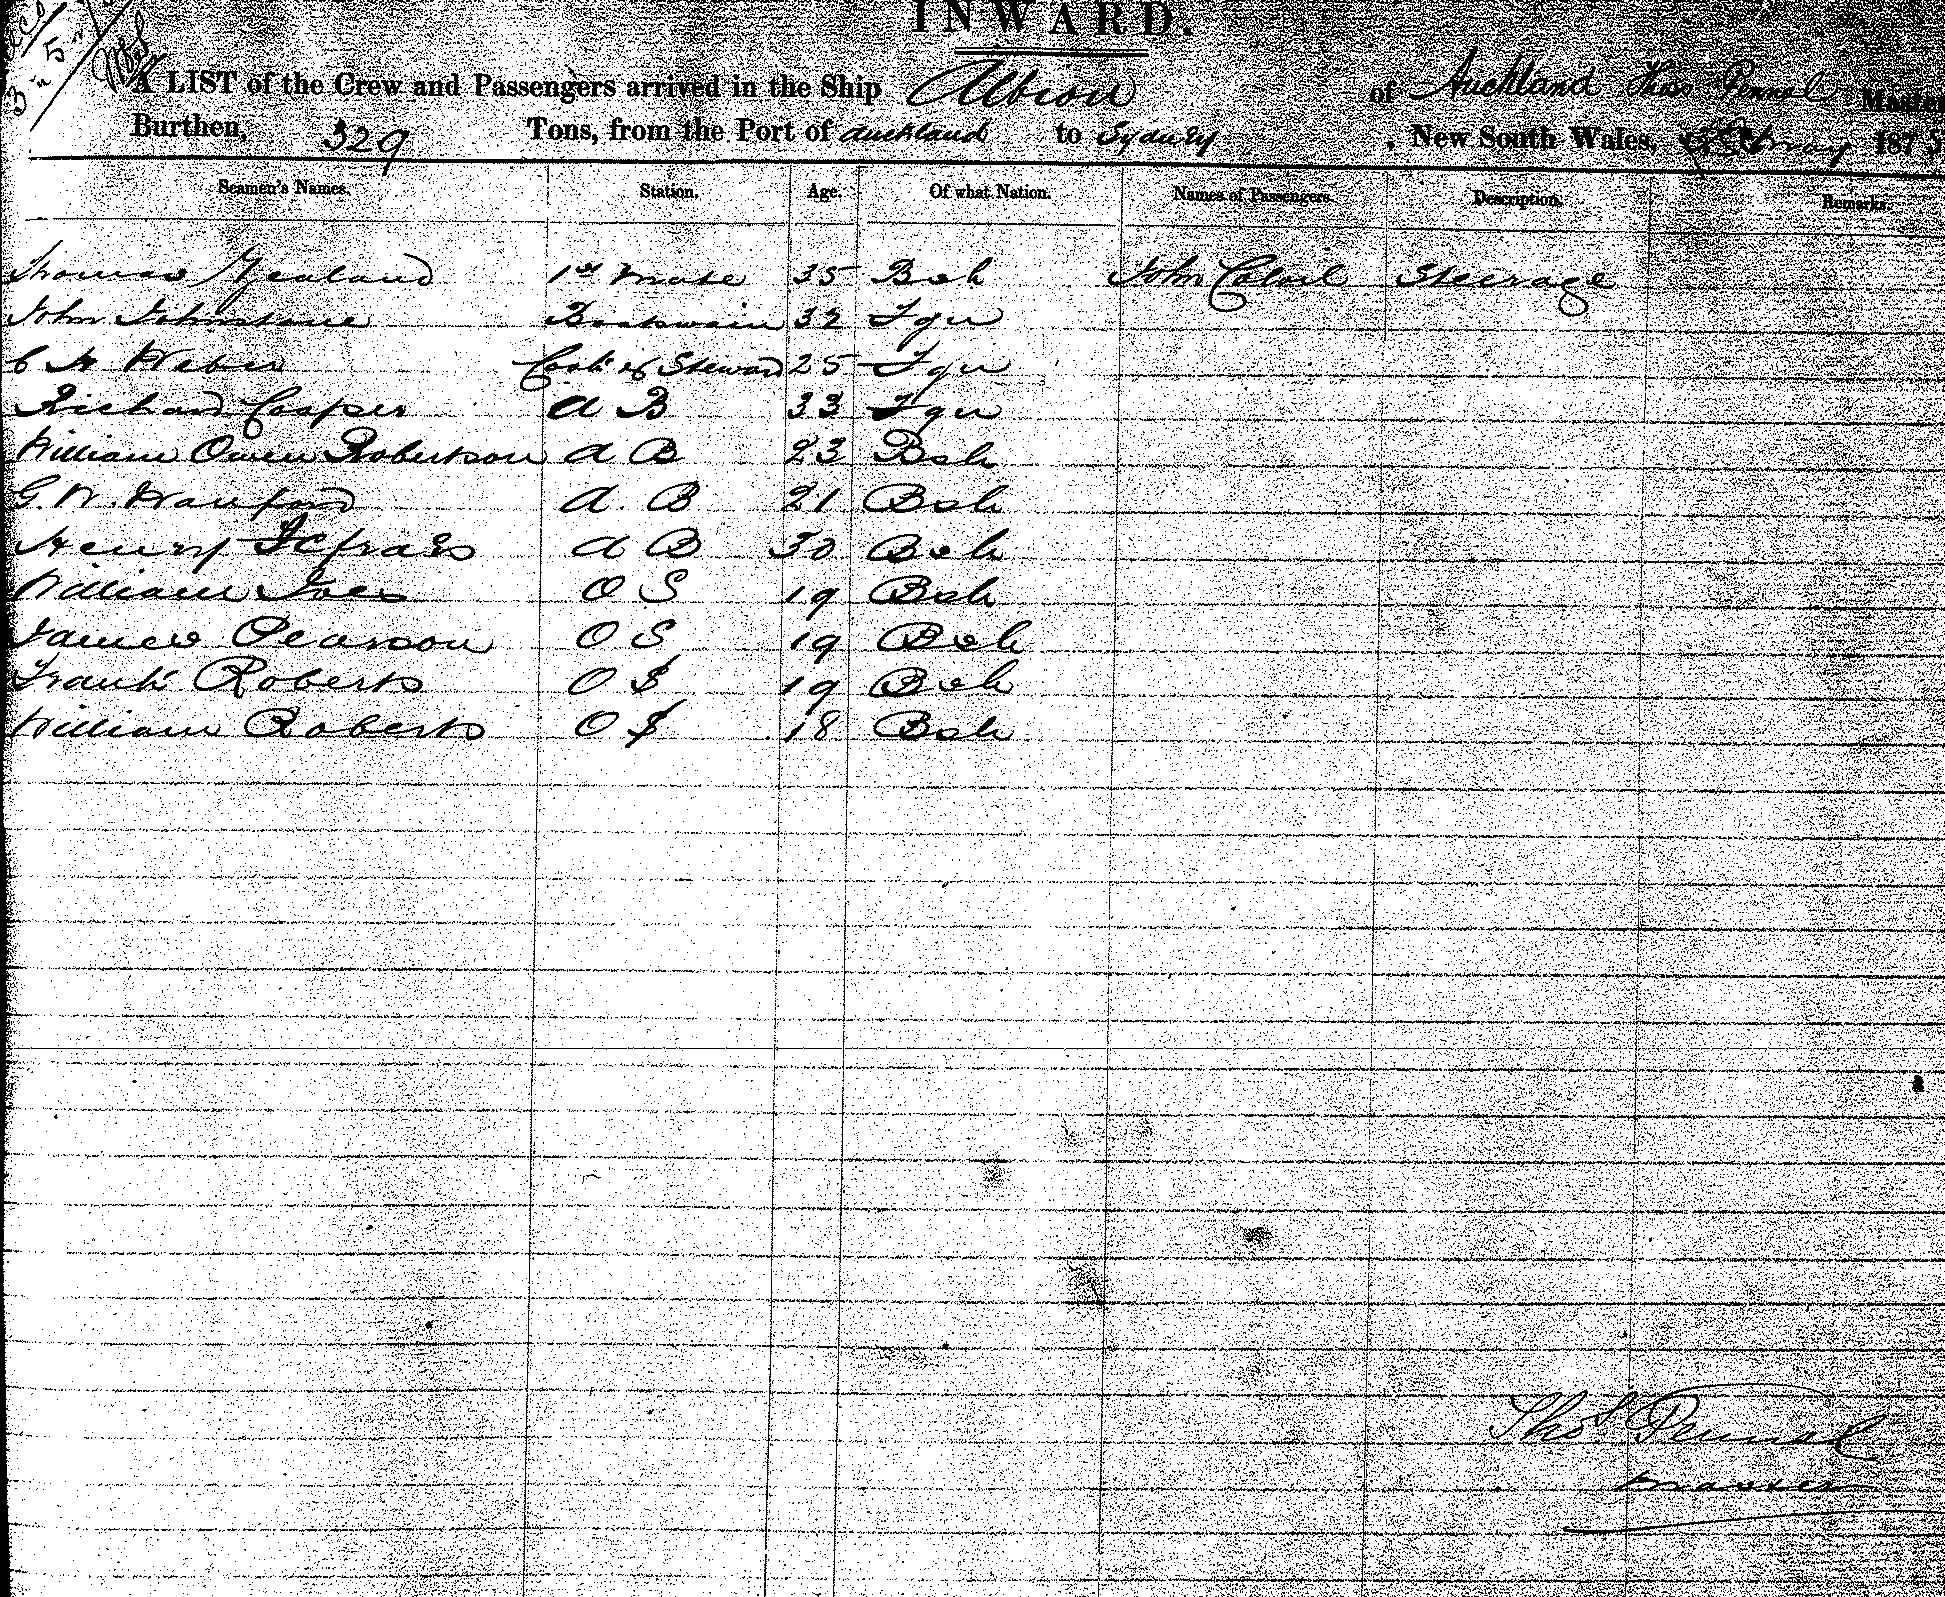 INWARD.
A LIST of the Crew and Passengers arrived in the Ship Albion of Auckland Thos Pennel Master
Burthen, 329 Tons, from the Port of Auckland to Sydney, New South Wales, May 1875
Seamen's Names. Station. Age. Of what Nation. Names of Passengers. Description. Remarks.
Thomas Yealand 1st Mate 35 Bsh John Steerage
John Johnstone Boatswain 32 Fgn
C H Weber Cook & Steward 25 Fgn
Richard Cooper A B 33 Fgn
William Owen Robertson A B 23 Bsh
G. W. A. B 21 Bsh
Henry A B 30 Bsh
William Ives O S 19 Bsh
James Pearson O S 19 Bsh
Frank Roberts O S 19 Bsh
William Roberts O S 18 Bsh
Thos Pennel
Master